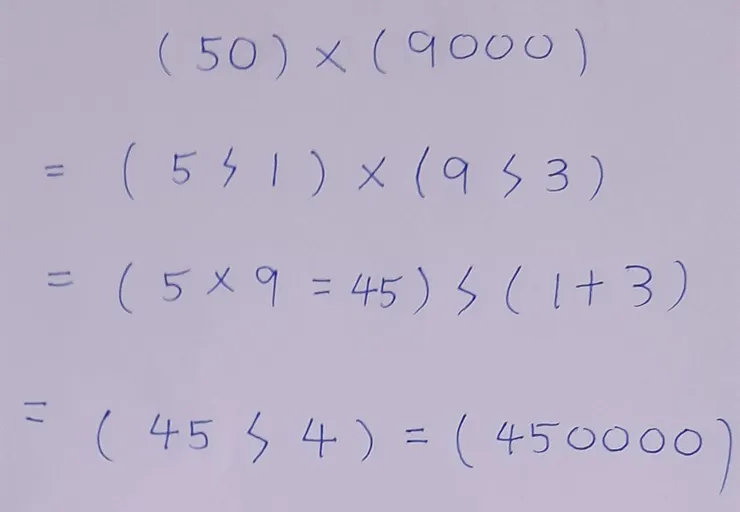 ( 50 ) × ( 9000 )
= ( 5 ϟ 1 ) × ( 9 ϟ 3 )
= ( 5 × 9 = 45 ) ϟ ( 1 + 3 )
= ( 45 ϟ 4 ) = ( 450000 )